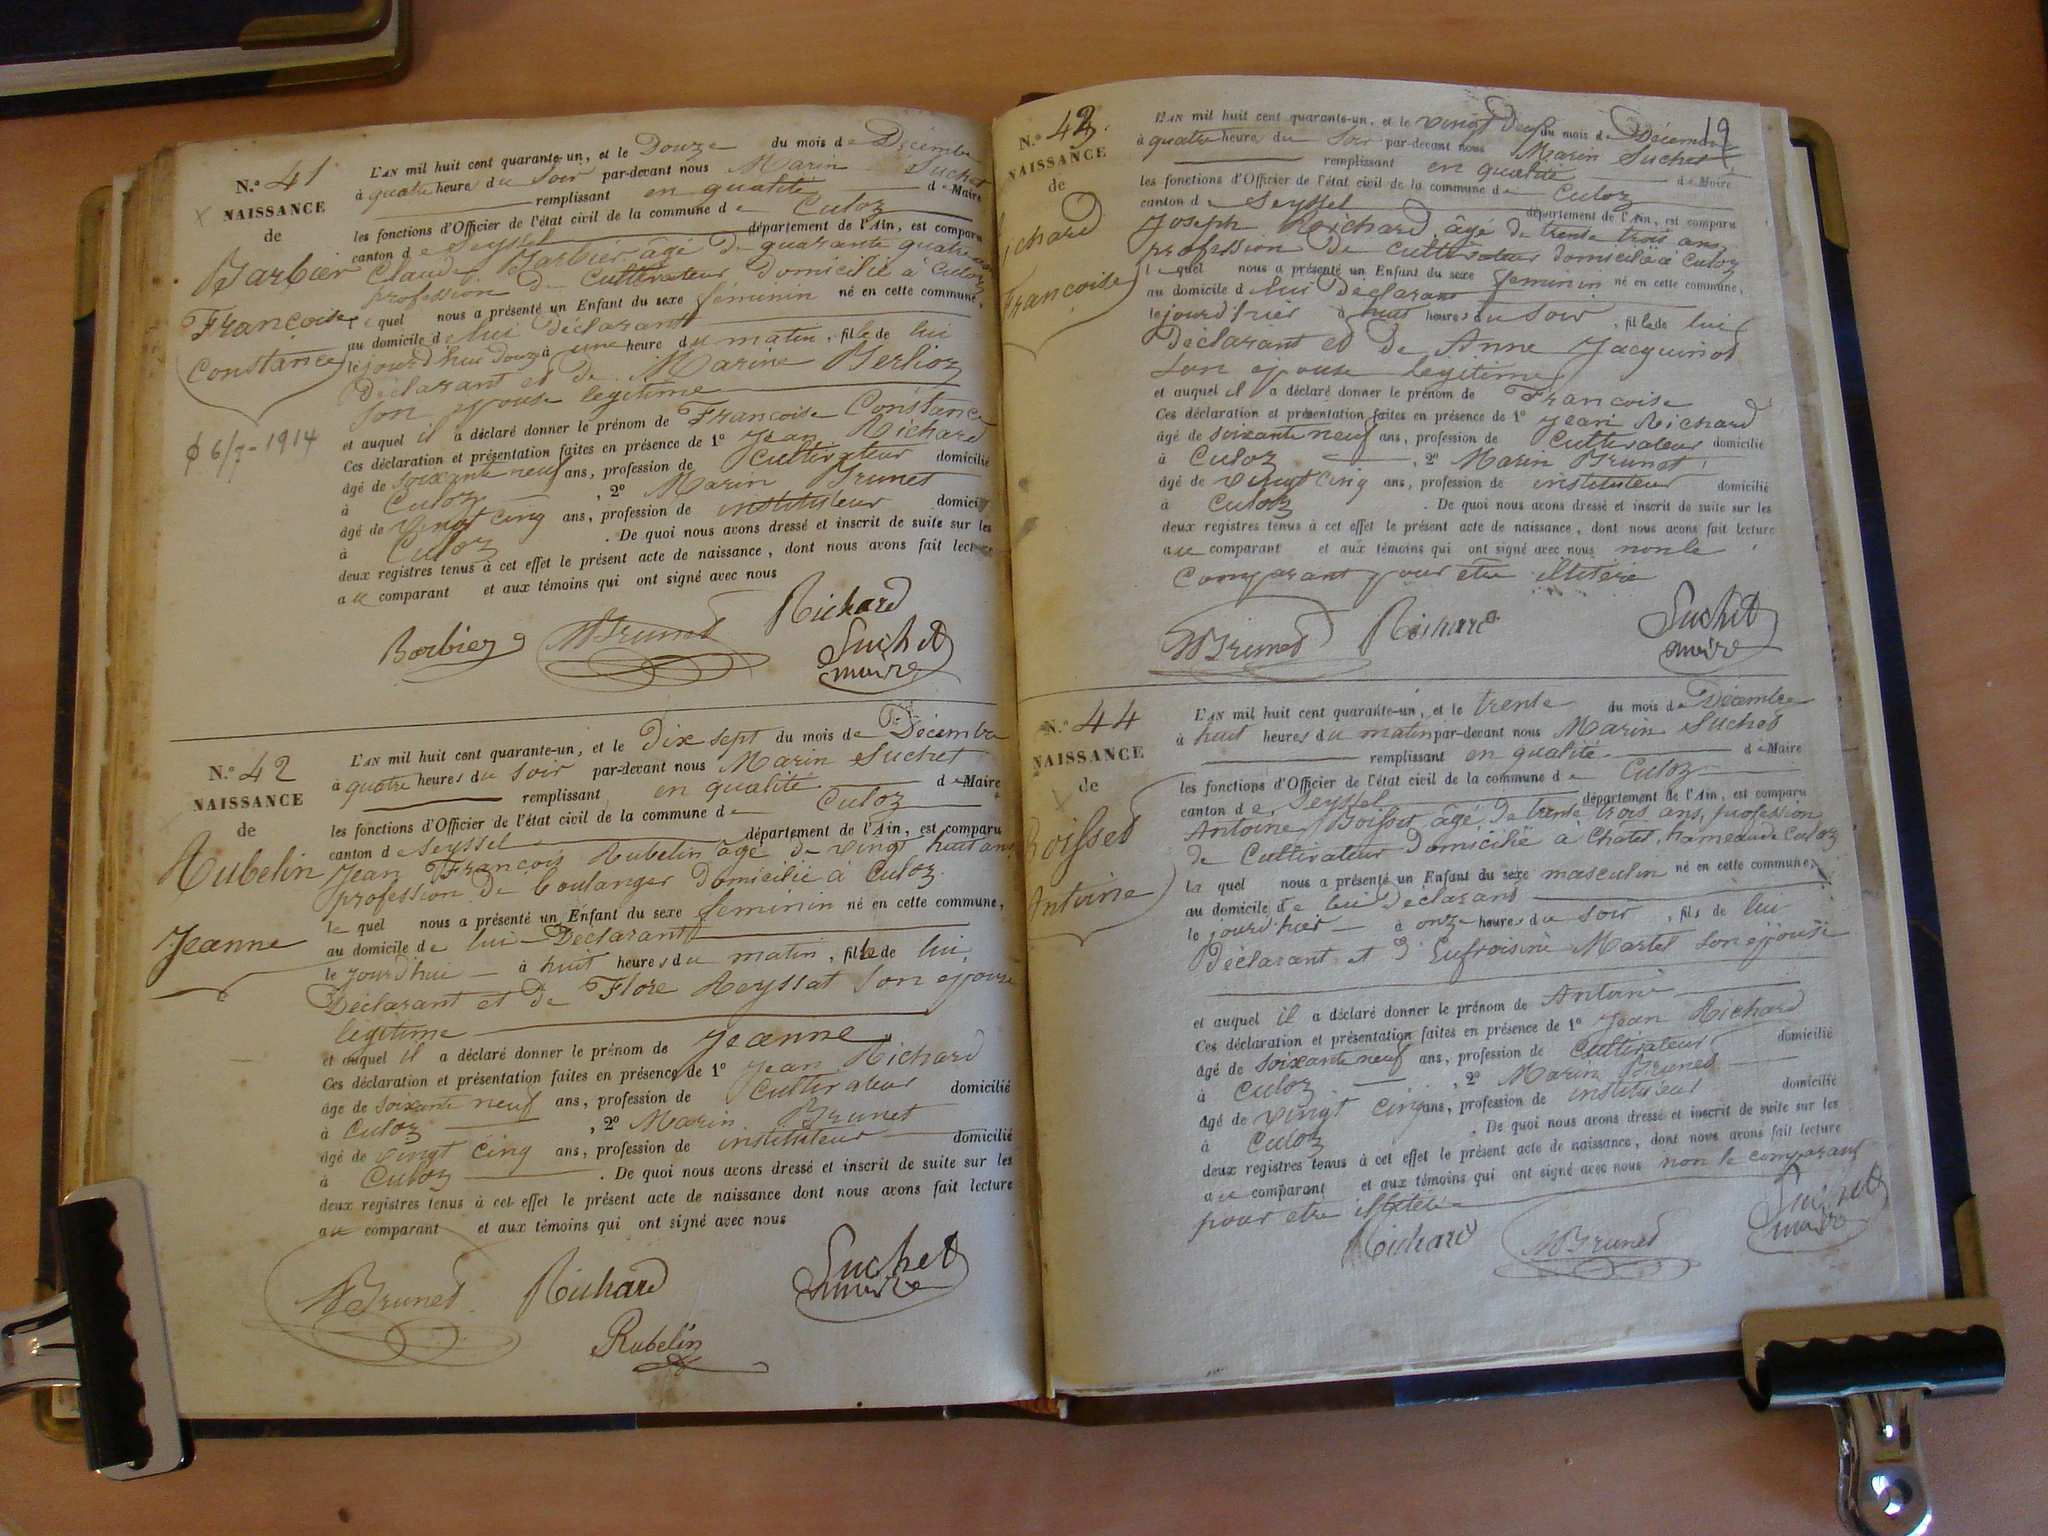 N.° 41
NAISSANCE
de
Barbier
Françoise
Constance
6/7-1914
L'AN mil huit cent quarante-un, et le Douze du mois de Décembre
à quatre heures du soir par-devant nous Marin Suchet
remplissant en qualité de Maire
les fonctions d'Officier de l'état civil de la commune de Culoz
canton de Seyssel département de l'Ain, est comparu
Claude Barbier âgé de quarante quatre ans
profession de Cultivateur Domicilié à Culoz
le quel nous a présenté un Enfant du sexe féminin né en cette commune,
au domicile de lui Déclarant
le jourd'hui Douze à une heure du matin, fille de lui
Déclarant et de Marine Berlioz
son épouse legitime
et auquel il a déclaré donner le prénom de Francoise Constance
Ces déclaration et présentation faites en présence de 1° Jean Richard
âgé de soixante neuf ans, profession de Cultivateur domicilié
à Culoz, 2° Marin Brunet
âgé de vingt cinq ans, profession de instituteur domicilié
à Culoz. De quoi nous avons dressé et inscrit de suite sur les
deux registres tenus à cet effet le présent acte de naissance, dont nous avons fait lecture
au comparant et aux témoins qui ont signé avec nous
Barbier MBrunet Richard
Suchet
maire
N.° 42
NAISSANCE
de
Rubelin
Jeanne
L'AN mil huit cent quarante-un, et le Dix sept du mois de Décembre
à quatre heures du soir par-devant nous Marin Suchet
remplissant en qualité de Maire
les fonctions d'Officier de l'état civil de la commune de Culoz
canton de Seyssel département de l'Ain, est comparu
Jean François Rubelin âgé de vingt huit ans
profession de boulanger Domicilié à Culoz
le quel nous a présenté un Enfant du sexe feminin né en cette commune,
au domicile de lui Déclarant
le jourd'hui à huit heures du matin, fille de lui
Déclarant et de Flore Reyssat son epouse
légitime
et auquel il a déclaré donner le prénom de Jeanne
Ces déclaration et présentation faites en présence de 1° Jean Richard
âgé de soixante neuf ans, profession de Cultivateur domicilié
à Culoz, 2° Marin Brunet
âgé de vingt cinq ans, profession de instituteur domicilié
à Culoz. De quoi nous avons dressé et inscrit de suite sur les
deux registres tenus à cet effet le présent acte de naissance dont nous avons fait lecture
au comparant et aux témoins qui ont signé avec nous
MBrunet Richard Suchet
maire
Rubelin
19
N.° 43.
NAISSANCE
de
Richard
Françoise
L'AN mil huit cent quarante-un, et le vingt Deux du mois de Décembre
à quatre heures du soir par-devant nous Marin Suchet
remplissant en qualité de Maire
les fonctions d'Officier de l'état civil de la commune de Culoz
canton de Seyssel département de l'Ain, est comparu
Joseph Richard âgé de trente trois ans
profession De cultivateur domicilié à Culoz
le quel nous a présenté un Enfant du sexe feminin né en cette commune,
au domicile de lui Déclarant
le jourd'hier à huit heures du soir, fille de lui
Déclarant et De Anne Jacquinot
son epouse legitime
et auquel il a déclaré donner le prénom de Francoise
Ces déclaration et présentation faites en présence de 1° Jean Richard
âgé de soixante neuf ans, profession de Cultivateur domicilié
à Culoz, 2° Marin Brunet
âgé de vingt cinq ans, profession de instituteur domicilié
à Culoz. De quoi nous avons dressé et inscrit de suite sur les
deux registres tenus à cet effet le présent acte de naissance, dont nous avons fait lecture
au comparant et aux témoins qui ont signé avec nous non le
Comparant pour etre illitéré
MBrunet Richard Suchet
maire
N.° 44
NAISSANCE
de
Boisset
Antoine
L'AN mil huit cent quarante-un, et le trente du mois de Décembre
à huit heures du matin par-devant nous Marin Suchet
remplissant en qualité de Maire
les fonctions d'Officier de l'état civil de la commune de Culoz
canton de Seyssel département de l'Ain, est comparu
Antoine Boisset âgé De trente trois ans, profession
de Cultivateur Domicilié à Chatel hameau de Culoz
la quel nous a présenté un Enfant du sexe masculin né en cette commune,
au domicile de lui déclarant
le jourd'hier à onze heures du soir, fils de lui
Déclarant et D'Eufroisine Martel son épouse
et auquel il a déclaré donner le prénom de Antoine
Ces déclaration et présentation faites en présence de 1° Jean Richard
âgé de soixante neuf ans, profession de Cultivateur domicilié
à Culoz, 2° Marin Brunet
âgé de vingt cinq ans, profession de instituteur domicilié
à Culoz. De quoi nous avons dressé et inscrit de suite sur les
deux registres tenus à cet effet le présent acte de naissance, dont nous avons fait lecture
au comparant et aux témoins qui ont signé avec nous non le comparant
pour etre illitéré
Richard MBrunet Suchet
maire